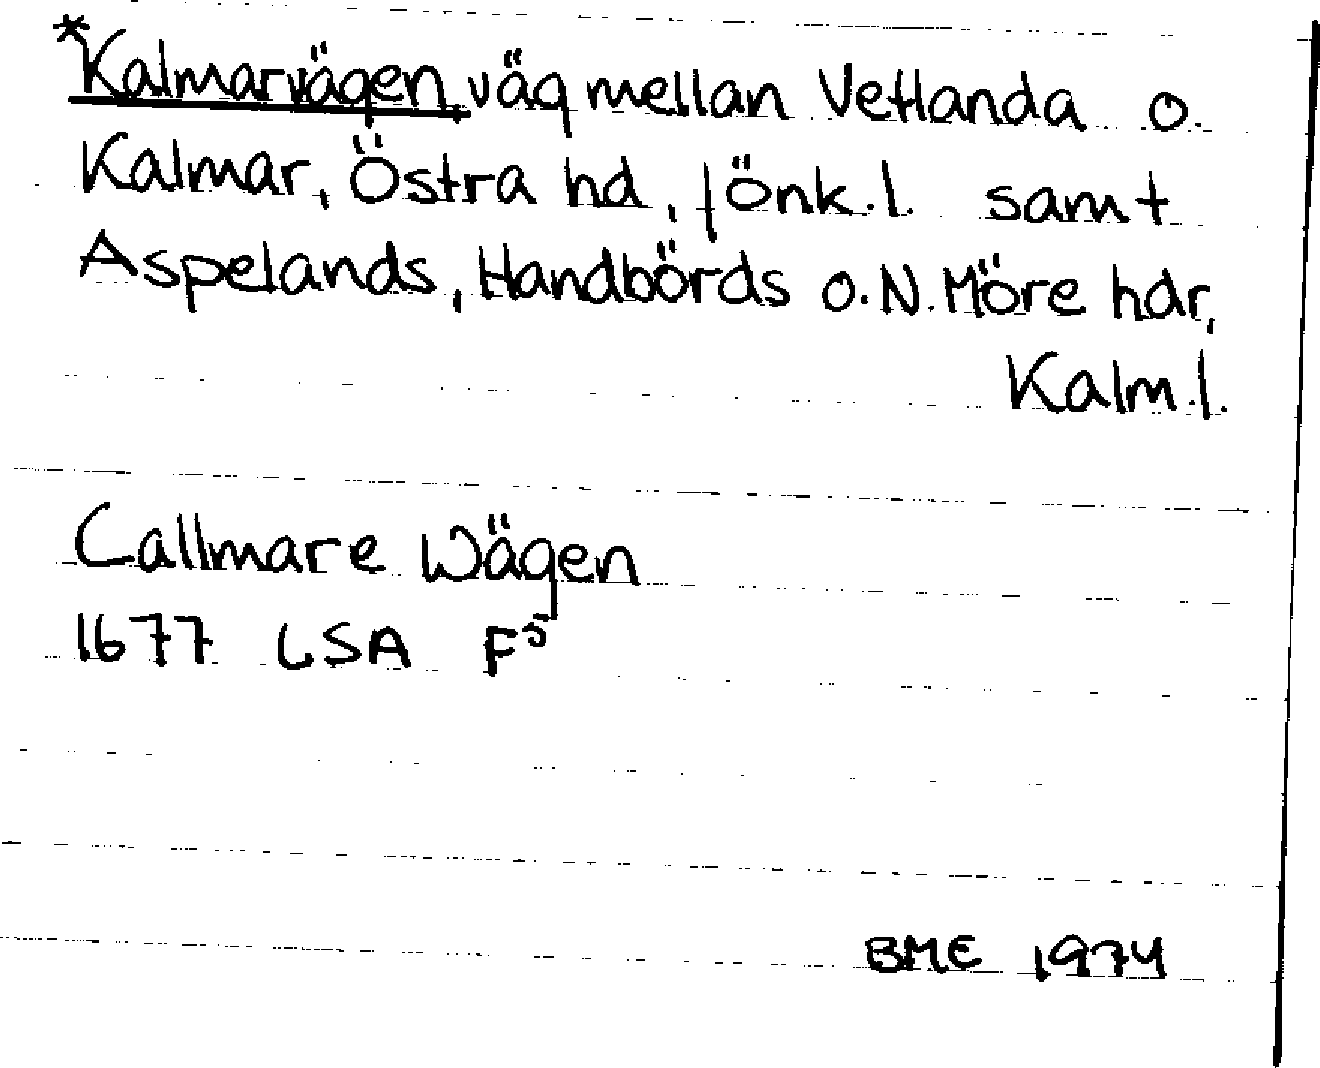 *Kalmarvägen väg mellan Vetlanda o.
Kalmar, Östra hd, Jönk.l. samt
Aspelands, Handbörds o. N. Möre hdr,
Kalm.l.
Callmare Wägen
1677 LSA F5
BME 1974